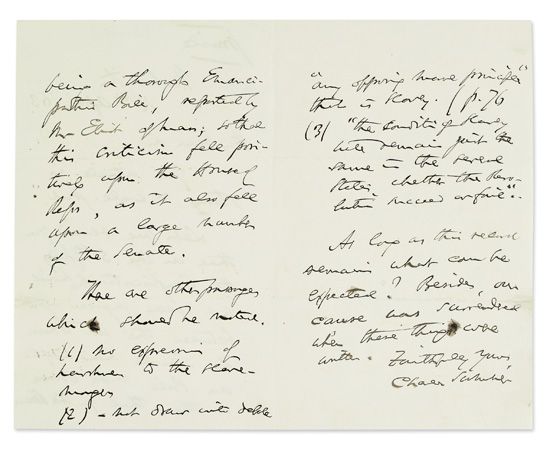 being a thorough Emanci-
pation Bill, reported by
Mr Eliot of Mass; so that
this criticism fell posi-
tively upon the House of
Reps, as it also fell
upon a large number
of the Senate.
There are other passages
which should be noticed.
(1) no expression of
harshness to the slave-
mongers
(2) - not draw into debate
"any opposing moral principle"
that is Slavery. (p. 76
(3) "the condition of Slavery
will remain just the
same in the several
States, whether the Revo-
lution succeed or fail".
As long as this record
remains what can be
expected? Besides, our
cause was surrendered
when these things were
written. Faithfully yours,
Charles Sumner